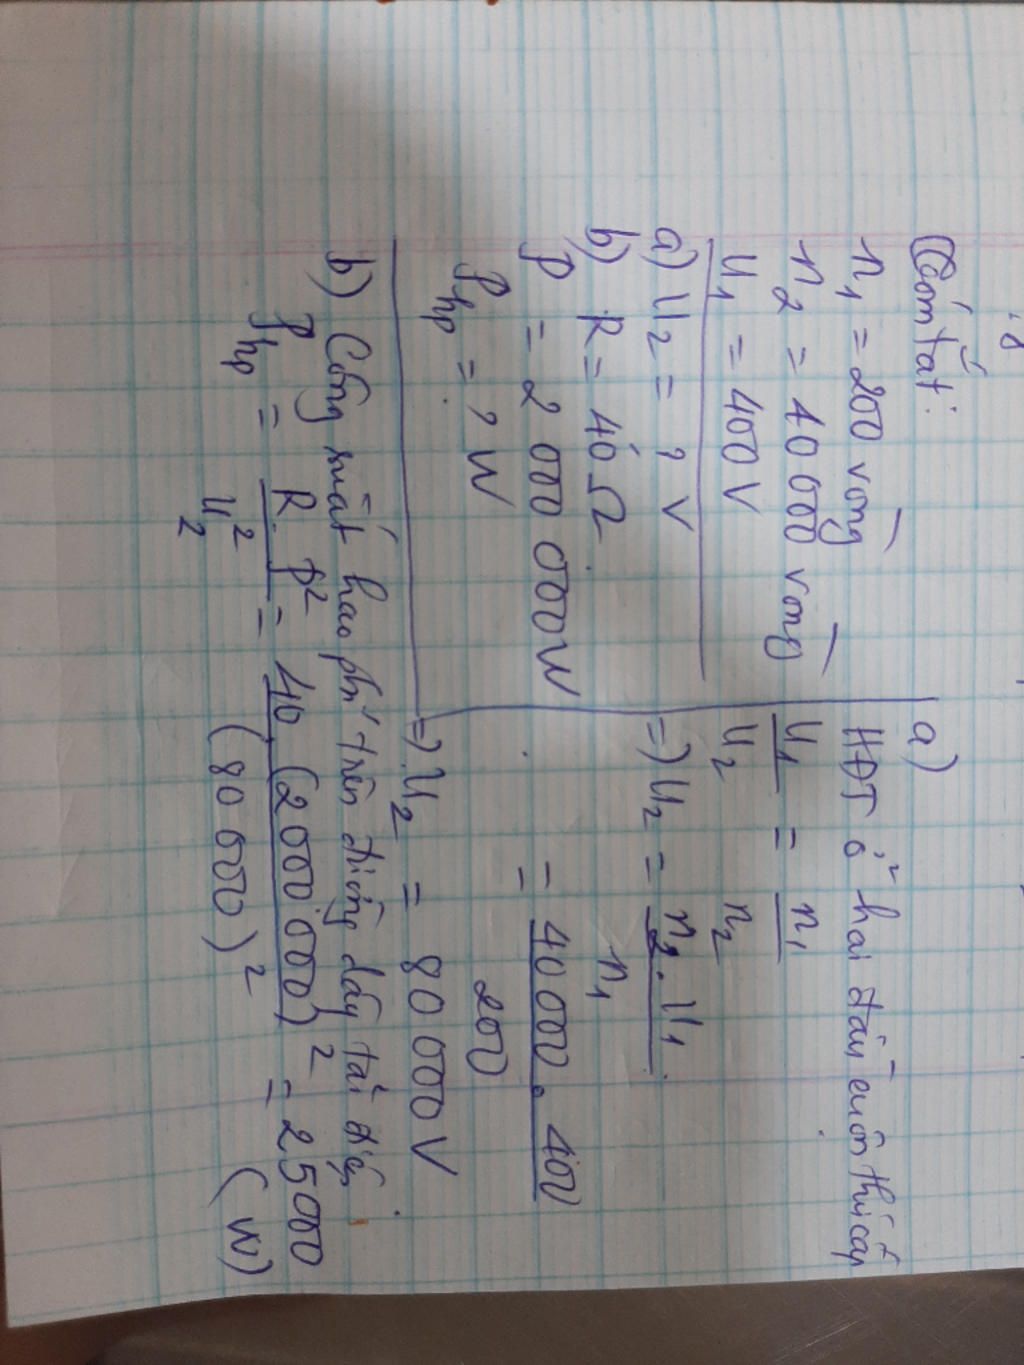 Tóm tắt:
n₁ = 200 vòng
n₂ = 40 000 vòng
U₁ = 400 V
a) U₂ = ? V
b) R = 40 Ω
P = 2 000 000 W
P_hp = ? W
a)
HĐT ở hai đầu cuộn thứ cấp
U₁/U₂ = n₁/n₂
=> U₂ = n₂.U₁/n₁
= 40 000 . 400/200
=> U₂ = 80 000 V
b) Công suất hao phí trên đường dây tải điện
P_hp = R.P²/U₂² = 40.(2000 000)²/(80 000)² = 25000
(W)